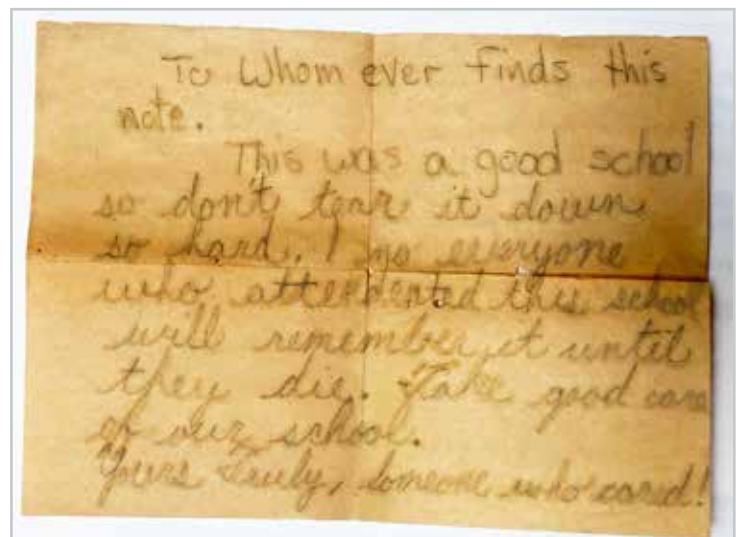 To Whom ever finds this
note.
This was a good school
so don't tear it down
so hard. I no everyone
who attendented this school
will remember it until
they die. Take good care
of our school.
Yours Truly, Someone who cared!